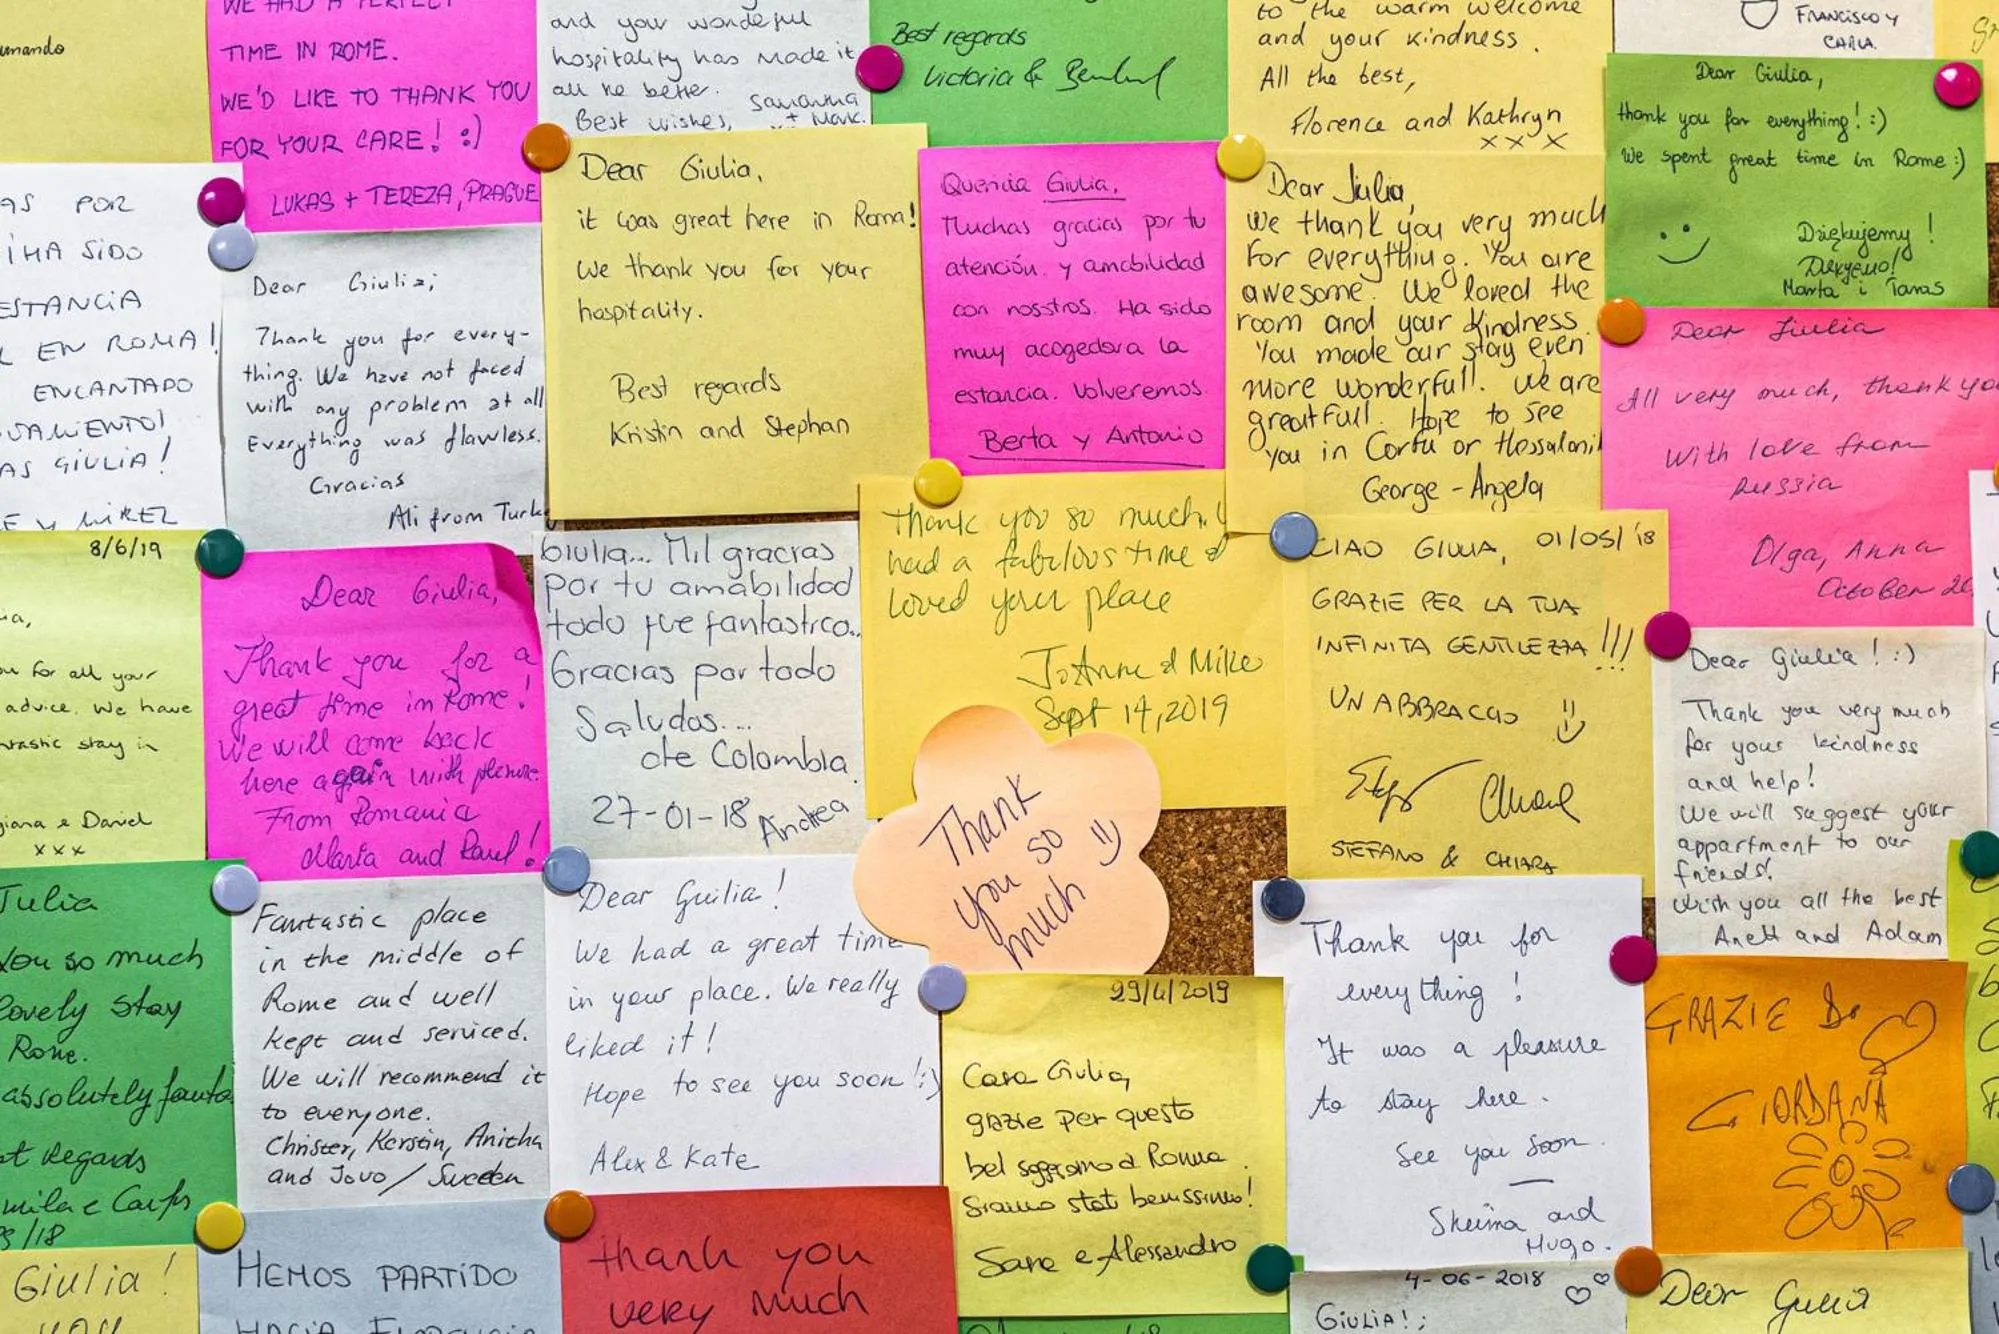 WE HAD A PERFECT
TIME IN ROME.
WE'D LIKE TO THANK YOU
FOR YOUR CARE! :)
LUKAS + TEREZA, PRAGUE
and your wonderful
hospitality has made it
all the better.
Best wishes,
Samantha
+ Mark.
Best regards
Victoria &
to the warm welcome
and your kindness.
All the best,
Florence and Kathryn
x x x
FRANCISCO Y
CARLA.
Dear Giulia,
thank you for everything! :)
We spent great time in Rome :)
Dziękujemy!
Дякуємо!
Marta i Taras
AS POR
HA SIDO
ESTANCIA
EN ROMA!
ENCANTADO
AS GIULIA!
Dear Giulia;
Thank you for every-
thing. We have not faced
with any problem at all
Everything was flawless.
Gracias
Ali from Turke
Dear Giulia,
it was great here in Roma!
We thank you for your
hospitality.
Best regards
Kristin and Stephan
Querida Giulia,
Muchas gracias por tu
atención y amabilidad
con nosotros. Ha sido
muy acogedora la
estancia. Volveremos.
Berta y Antonio
Dear Julia,
We thank you very much
for everything. You are
awesome. We loved the
room and your kindness.
You made our stay even
more wonderfull. We are
greatfull. Hope to see
you in Corfu or thessaloni
George - Angela
Dear Giulia
All very much, thank you
With love from
Russia
Olga, Anna
October 20
8/6/19
for all your
advice. We have
stay in
e Daniel
x x x
Dear Giulia,
Thank you for a
great time in Rome!
We will come back
here again with pleasure.
From Romania
Maria and Raul!
Giulia... Mil gracias
por tu amabilidad
todo fue fantastico..
Gracias por todo
Saludos...
de Colombia.
27-01-18 Andrea
Thank you so much!
had a fabulous time &
loved your place
JoAnne & Mike
Sept 14, 2019
CIAO GIULIA, 01/05/'18
GRAZIE PER LA TUA
INFINITA GENTILEZZA !!!
UN ABBRACCIO
STEFANO & CHIARA
Dear Giulia! :)
Thank you very much
for your kindness
and help!
We will suggest your
appartment to our
friends!
Wish you all the best
Anett and Adam
Thank
you so
much
Julia
You so much
lovely stay
Rome.
absolutely
Regards
Fantastic place
in the middle of
Rome and well
kept and serviced.
We will recommend it
to everyone.
Christer, Kerstin, Anitha
and Jovo / Sweden
Dear Guilia!
We had a great time
in your place. We really
liked it!
Hope to see you soon! :)
Alex & Kate
29/4/2019
Cara Giulia,
grazie per questo
bel soggiorno a Roma
Siamo stati benissimo!
Sara e Alessandro
Thank you for
everything!
It was a pleasure
to stay here.
See you soon.
Sheima and
Hugo.
GRAZIE Da
GIORDANA
Giulia!
HEMOS PARTIDO
HACIA
thank you
very much
4-06-2018
GIULIA!;
Dear Giulia